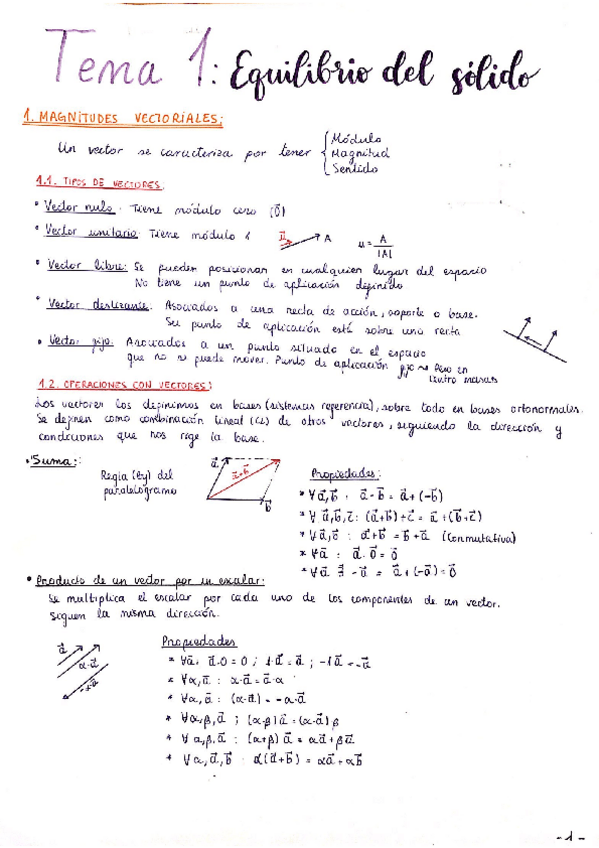 Tema 1: Equilibrio del sólido
1. MAGNITUDES VECTORIALES:
Un vector se caracteriza por tener { Módulo
Magnitud
Sentido
1.1. TIPOS DE VECTORES.
• Vector nulo. Tiene módulo cero (0⃗)
• Vector unitario: Tiene módulo 1
u⃗ A u = A / |A|
• Vector libre: Se pueden posicionar en cualquier lugar del espacio
No tiene un punto de aplicación definido
• Vector deslizante. Asociados a una recta de acción, soporte o base.
Su punto de aplicación está sobre una recta
• Vector fijo: Asociados a un punto situado en el espacio
que no se puede mover. Punto de aplicación fijo ~ Peso en
centro masas
1.2. OPERACIONES CON VECTORES:
Los vectores los definimos en bases (sistemas referencia), sobre todo en bases ortonormales.
Se definen como combinación lineal (CL) de otros vectores, siguiendo la dirección y
condiciones que nos rige la base.
• Suma:
Regla (Ley) del
paralelogramo
a⃗ b⃗
Propiedades:
* ∀a⃗,b⃗ : a⃗-b⃗ = a⃗+(-b⃗)
* ∀ a⃗,b⃗,c⃗ : (a⃗+b⃗)+c⃗ = a⃗+(b⃗+c⃗)
* ∀a⃗,b⃗ : a⃗+b⃗ = b⃗+a⃗ (conmutativa)
* ∀a⃗ : a⃗·0⃗ = 0⃗
* ∀a⃗ ∃ -a⃗ = a⃗+(-a⃗) = 0⃗
• Producto de un vector por un escalar:
Se multiplica el escalar por cada uno de los componentes de un vector.
siguen la misma dirección.
a⃗
α·a⃗
Propiedades
* ∀a⃗: a⃗·0 = 0 ; 1·a⃗ = a⃗ ; -1·a⃗ = -a⃗
* ∀α,a⃗ : α·a⃗ = a⃗·α
* ∀α,a⃗ : (α·a⃗) = -α·a⃗
* ∀α,β,a⃗ ; (α·β)a⃗ = (α·a⃗)β
* ∀α,β,a⃗ : (α+β)a⃗ = αa⃗+βa⃗
* ∀α,a⃗,b⃗ : α(a⃗+b⃗) = αa⃗+αb⃗
-1-